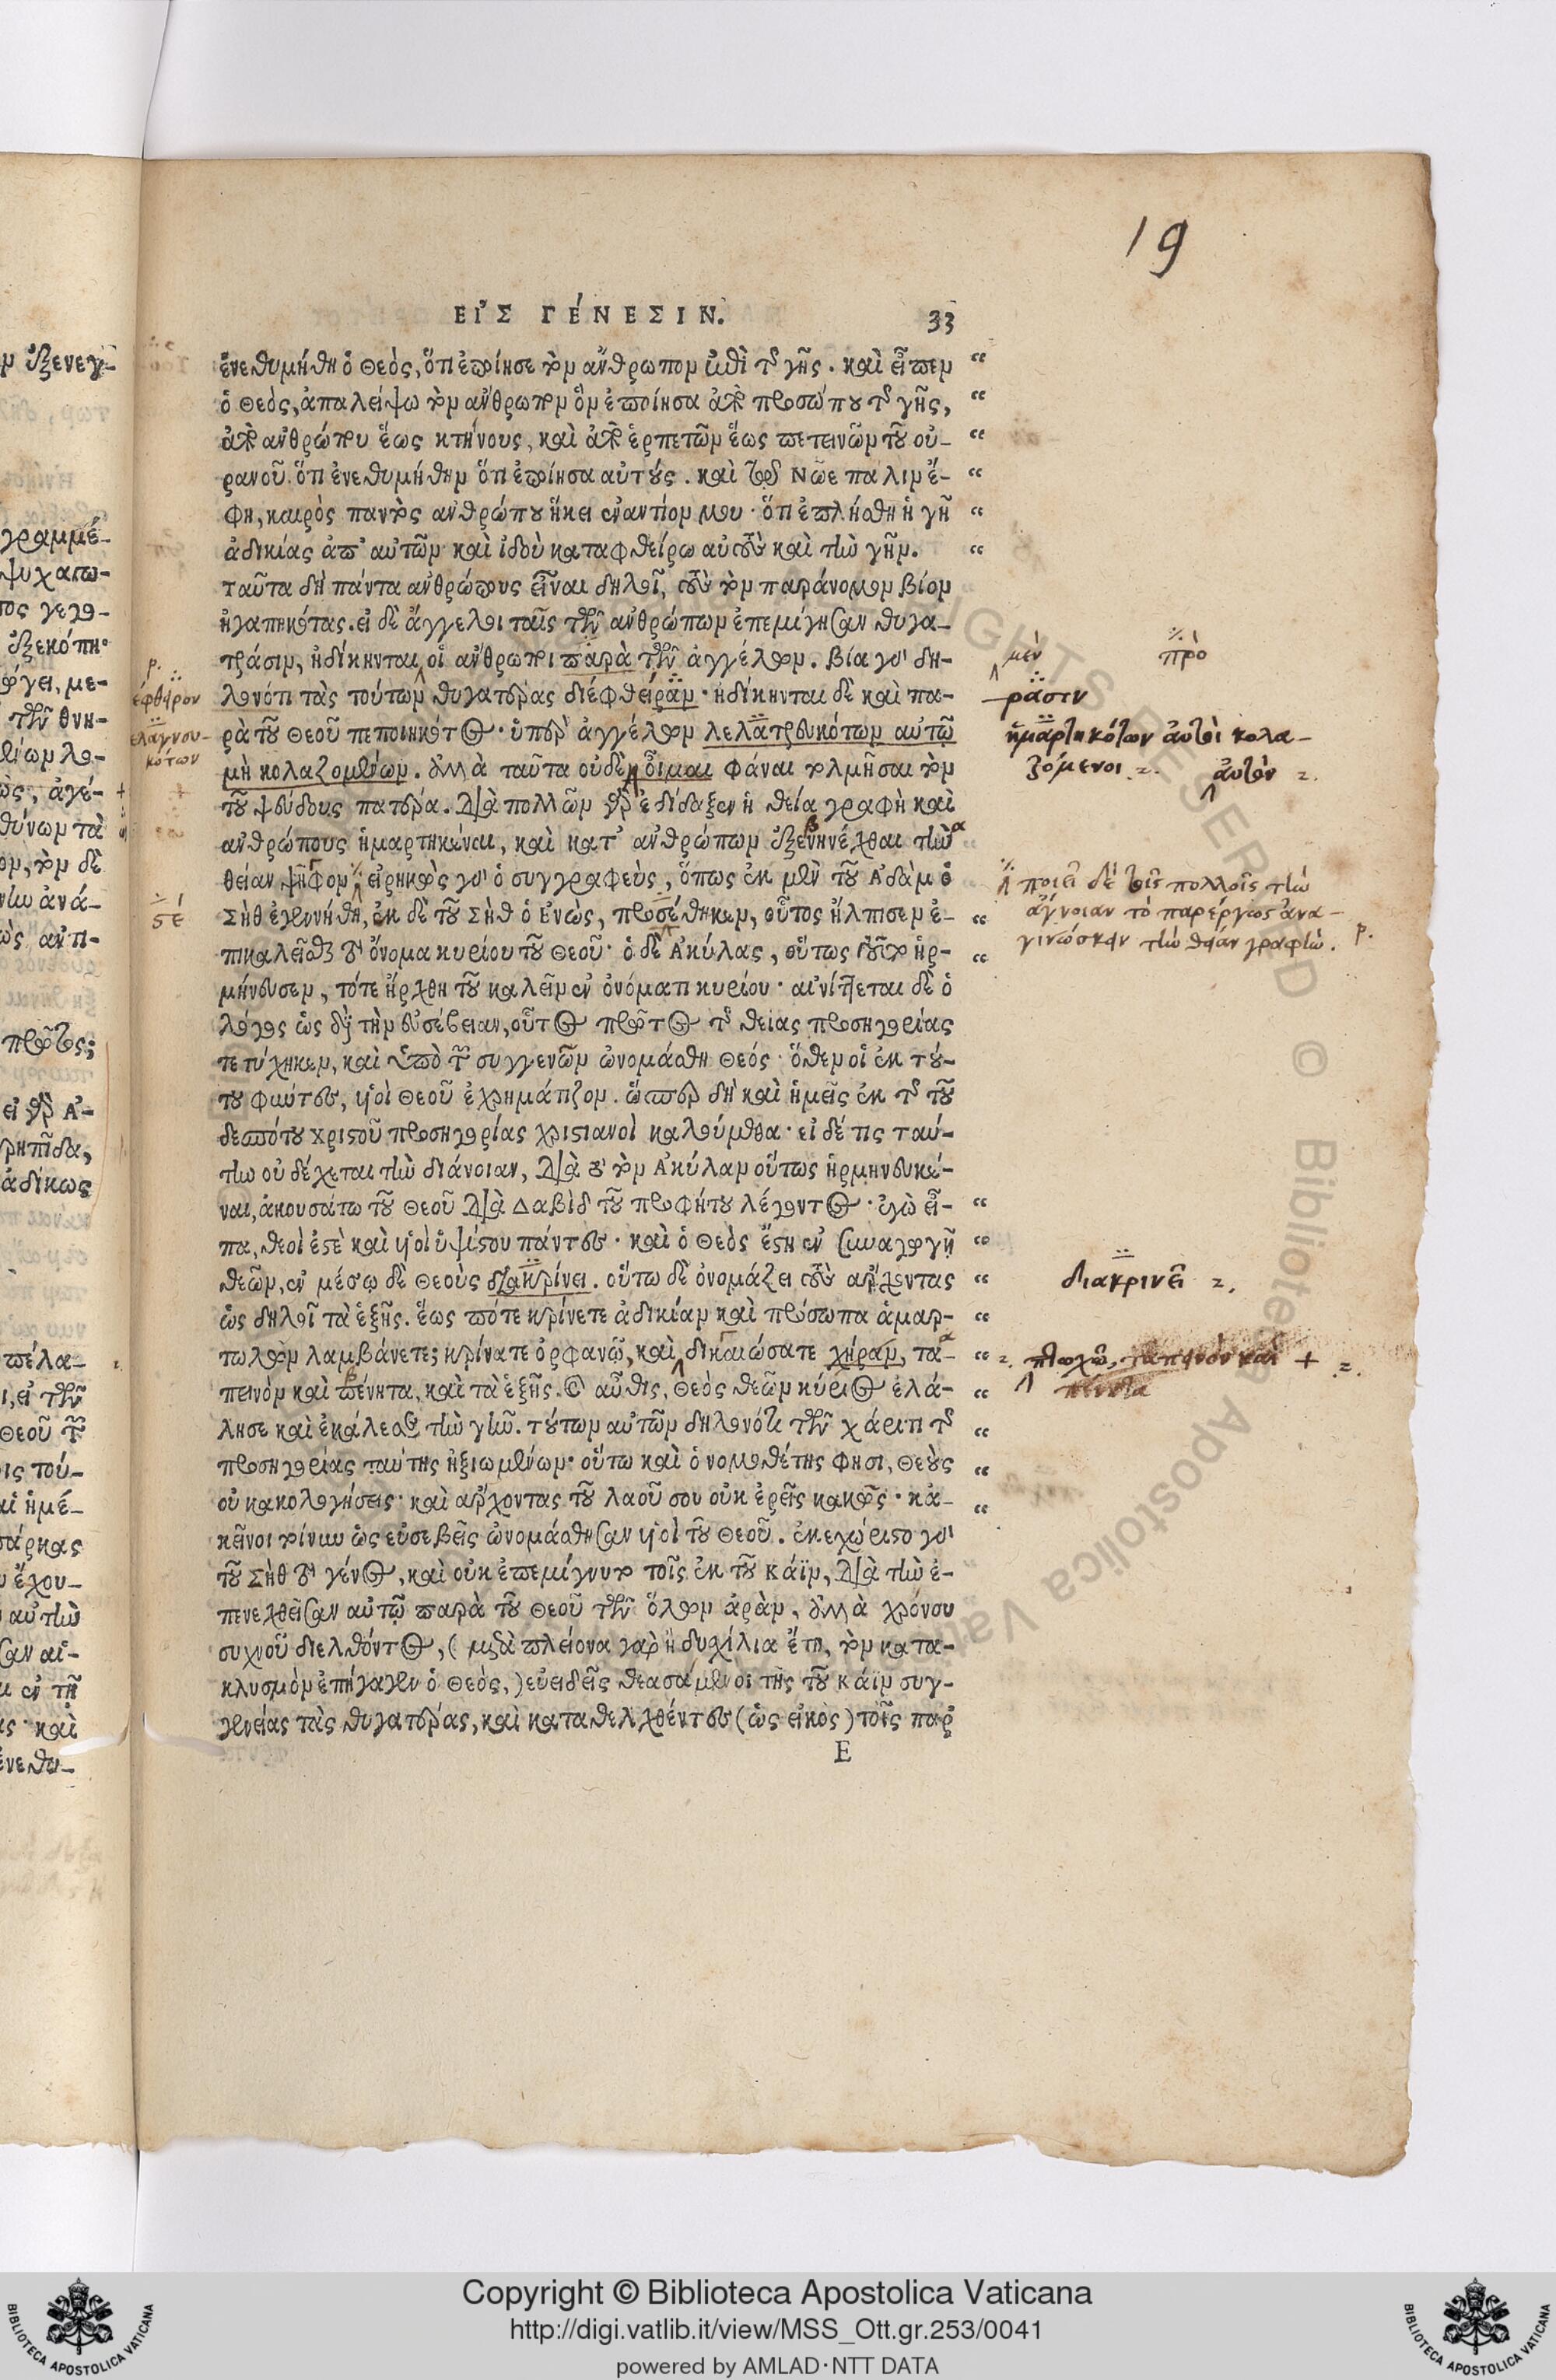 19
ΕἰΣ ΓέΝΕΣΙΝ. 33
ἐνεθυμήθη ὁ Θεὸς, ὅτι ἐποίησε τὸν ἄνθρωπον ἐπὶ τῆς γῆς. καὶ εἶπεν “
ὁ Θεὸς, ἀπαλείψω τὸν ἄνθρωπον ὃν ἐποίησα ἀπὸ προσώπου τῆς γῆς, “
ἀπὸ ἀνθρώπου ἕως κτήνους, καὶ ἀπὸ ἑρπετῶν ἕως πετεινῶν τοῦ οὐ- “
ρανοῦ. ὅτι ἐνεθυμήθην ὅτι ἐποίησα αὐτούς. καὶ πρὸς Νῶε πάλιν ἔ- “
φη, καιρὸς παντὸς ἀνθρώπου ἥκει ἐναντίον μου· ὅτι ἐπλήσθη ἡ γῆ “
ἀδικίας ἀπ’ αὐτῶν· καὶ ἰδοὺ καταφθείρω αὐτοὺς καὶ τὴν γῆν. “
ταῦτα δὴ πάντα ἀνθρώπους εἶναι δηλοῖ, τοὺς τὸν παράνομον βίον
ἠγαπηκότας. εἰ δὲ ἄγγελοι ταῖς τῶν ἀνθρώπων ἐπεμίγησαν θυγα-
τράσιν, ἠδίκηνται οἱ ἄνθρωποι παρὰ τῶν ἀγγέλων. βία γὰρ δη- μὲν πρὸ
ἐφθάρον λονότι τὰς τούτων θυγατέρας διέφθειραν· ἠδίκηνται δὲ καὶ πα- ρασιν
ἐλαγνευ- ρὰ τοῦ Θεοῦ πεποιηκότος· ὑπὲρ ἀγγέλων λελατρευκότων αὐτῷ ἡμαρτηκότων αὐτοὶ κολα-
κότων μὴ κολαζομένων. ἀλλὰ ταῦτα οὐδὲ οἶμαι φάναι τολμῆσαι τὸν ζόμενοι αὐτὸν
τοῦ ψεύδους πατέρα. διὰ πολλῶν γὰρ ἐδίδαξεν ἡ θεία γραφὴ καὶ
ἀνθρώπους ἡμαρτηκέναι, καὶ κατ’ ἀνθρώπων ἐξενηνέχθαι τὴν
θείαν ψῆφον· εἰρηκὼς γὰρ ὁ συγγραφεὺς, ὅπως ἐκ μὲν τοῦ Ἀδὰμ ὁ ποιεῖ δὲ τοῖς πολλοῖς τὴν
Σὴθ ἐγεννήθη, ἐκ δὲ τοῦ Σὴθ ὁ Ἐνὼς, προσέθηκεν, οὗτος ἤλπισεν ἐ- “ ἄγνοιαν τὸ παρέργως ἀνα-
πικαλεῖσθαι τὸ ὄνομα κυρίου τοῦ Θεοῦ· ὁ δὲ Ἀκύλας, οὕτως τοῦτο ἡρ- “ γινώσκειν τὴν θείαν γραφὴν.
μήνευσεν, τότε ἤρχθη τοῦ καλεῖν ἐν ὀνόματι κυρίου· αἰνίττεται δὲ ὁ
λόγος ὡς διὰ τὴν εὐσέβειαν, οὗτος πρῶτος τῆς θείας προσηγορίας
τετύχηκεν, καὶ ὑπὸ τῶν συγγενῶν ὠνομάσθη Θεός· ὅθεν οἱ ἐκ τού-
του φύντες, υἱοὶ Θεοῦ ἐχρημάτιζον. ὥσπερ δὴ καὶ ἡμεῖς ἐκ τῆς τοῦ
δεσπότου χριστοῦ προσηγορίας χριστιανοὶ καλούμεθα· εἰ δέ τις ταύ-
την οὐ δέχεται τὴν διάνοιαν, διὰ τὸ τὸν Ἀκύλαν οὕτως ἡρμηνευκέ-
ναι, ἀκουσάτω τοῦ Θεοῦ διὰ Δαβὶδ τοῦ προφήτου λέγοντος· ἐγὼ εἶ- “
πα, θεοὶ ἐστὲ καὶ υἱοὶ ὑψίστου πάντες· καὶ ὁ Θεὸς ἔστη ἐν συναγωγῇ “
θεῶν, ἐν μέσῳ δὲ Θεοὺς διακρίνει. οὕτω δὲ ὀνομάζει τοὺς ἄρχοντας “ διακρινεῖ
ὡς δηλοῖ τὰ ἑξῆς. ἕως πότε κρίνετε ἀδικίαν καὶ πρόσωπα ἁμαρ- “
τωλῶν λαμβάνετε; κρίνατε ὀρφανῷ, καὶ δικαιώσατε χήραν, τα- “ πτωχῶ, ταπεινὸν καὶ +
πεινὸν καὶ πένητα, καὶ τὰ ἑξῆς. καὶ αὖθις, Θεὸς θεῶν κύριος ἐλά- “ πένητα
λησε καὶ ἐκάλεσε τὴν γῆν. τούτων αὐτῶν δηλονότι τῶν χάριτι τῆς “
προσηγορίας ταύτης ἠξιωμένων· οὕτω καὶ ὁ νομοθέτης φησι, Θεοὺς “
οὐ κακολογήσεις· καὶ ἄρχοντας τοῦ λαοῦ σου οὐκ ἐρεῖς κακῶς· κἀ- “
κεῖνοι τοίνυν ὡς εὐσεβεῖς ὠνομάσθησαν υἱοὶ τοῦ Θεοῦ. ἐκεχώριστο γὰρ
τοῦ Σὴθ τὸ γένος, καὶ οὐκ ἐπεμίγνυτο τοῖς ἐκ τοῦ Κάϊν, διὰ τὴν ἐ-
πενεχθεῖσαν αὐτῷ παρὰ τοῦ Θεοῦ τῶν ὅλων ἀρὰν, ἀλλὰ χρόνου
συχνοῦ διελθόντος, (μετὰ πλείονα γὰρ ἢ δισχίλια ἔτη, τὸν κατα-
κλυσμὸν ἐπήγαγεν ὁ Θεὸς,) εὐειδεῖς θεασάμενοι τῆς τοῦ Κάϊν συγ-
γενείας τὰς θυγατέρας, καὶ καταθελχθέντες (ὡς εἰκὸς) τοῖς παρ’
E
Copyright © Biblioteca Apostolica Vaticana
http://digi.vatlib.it/view/MSS_Ott.gr.253/0041
powered by AMLAD·NTT DATA